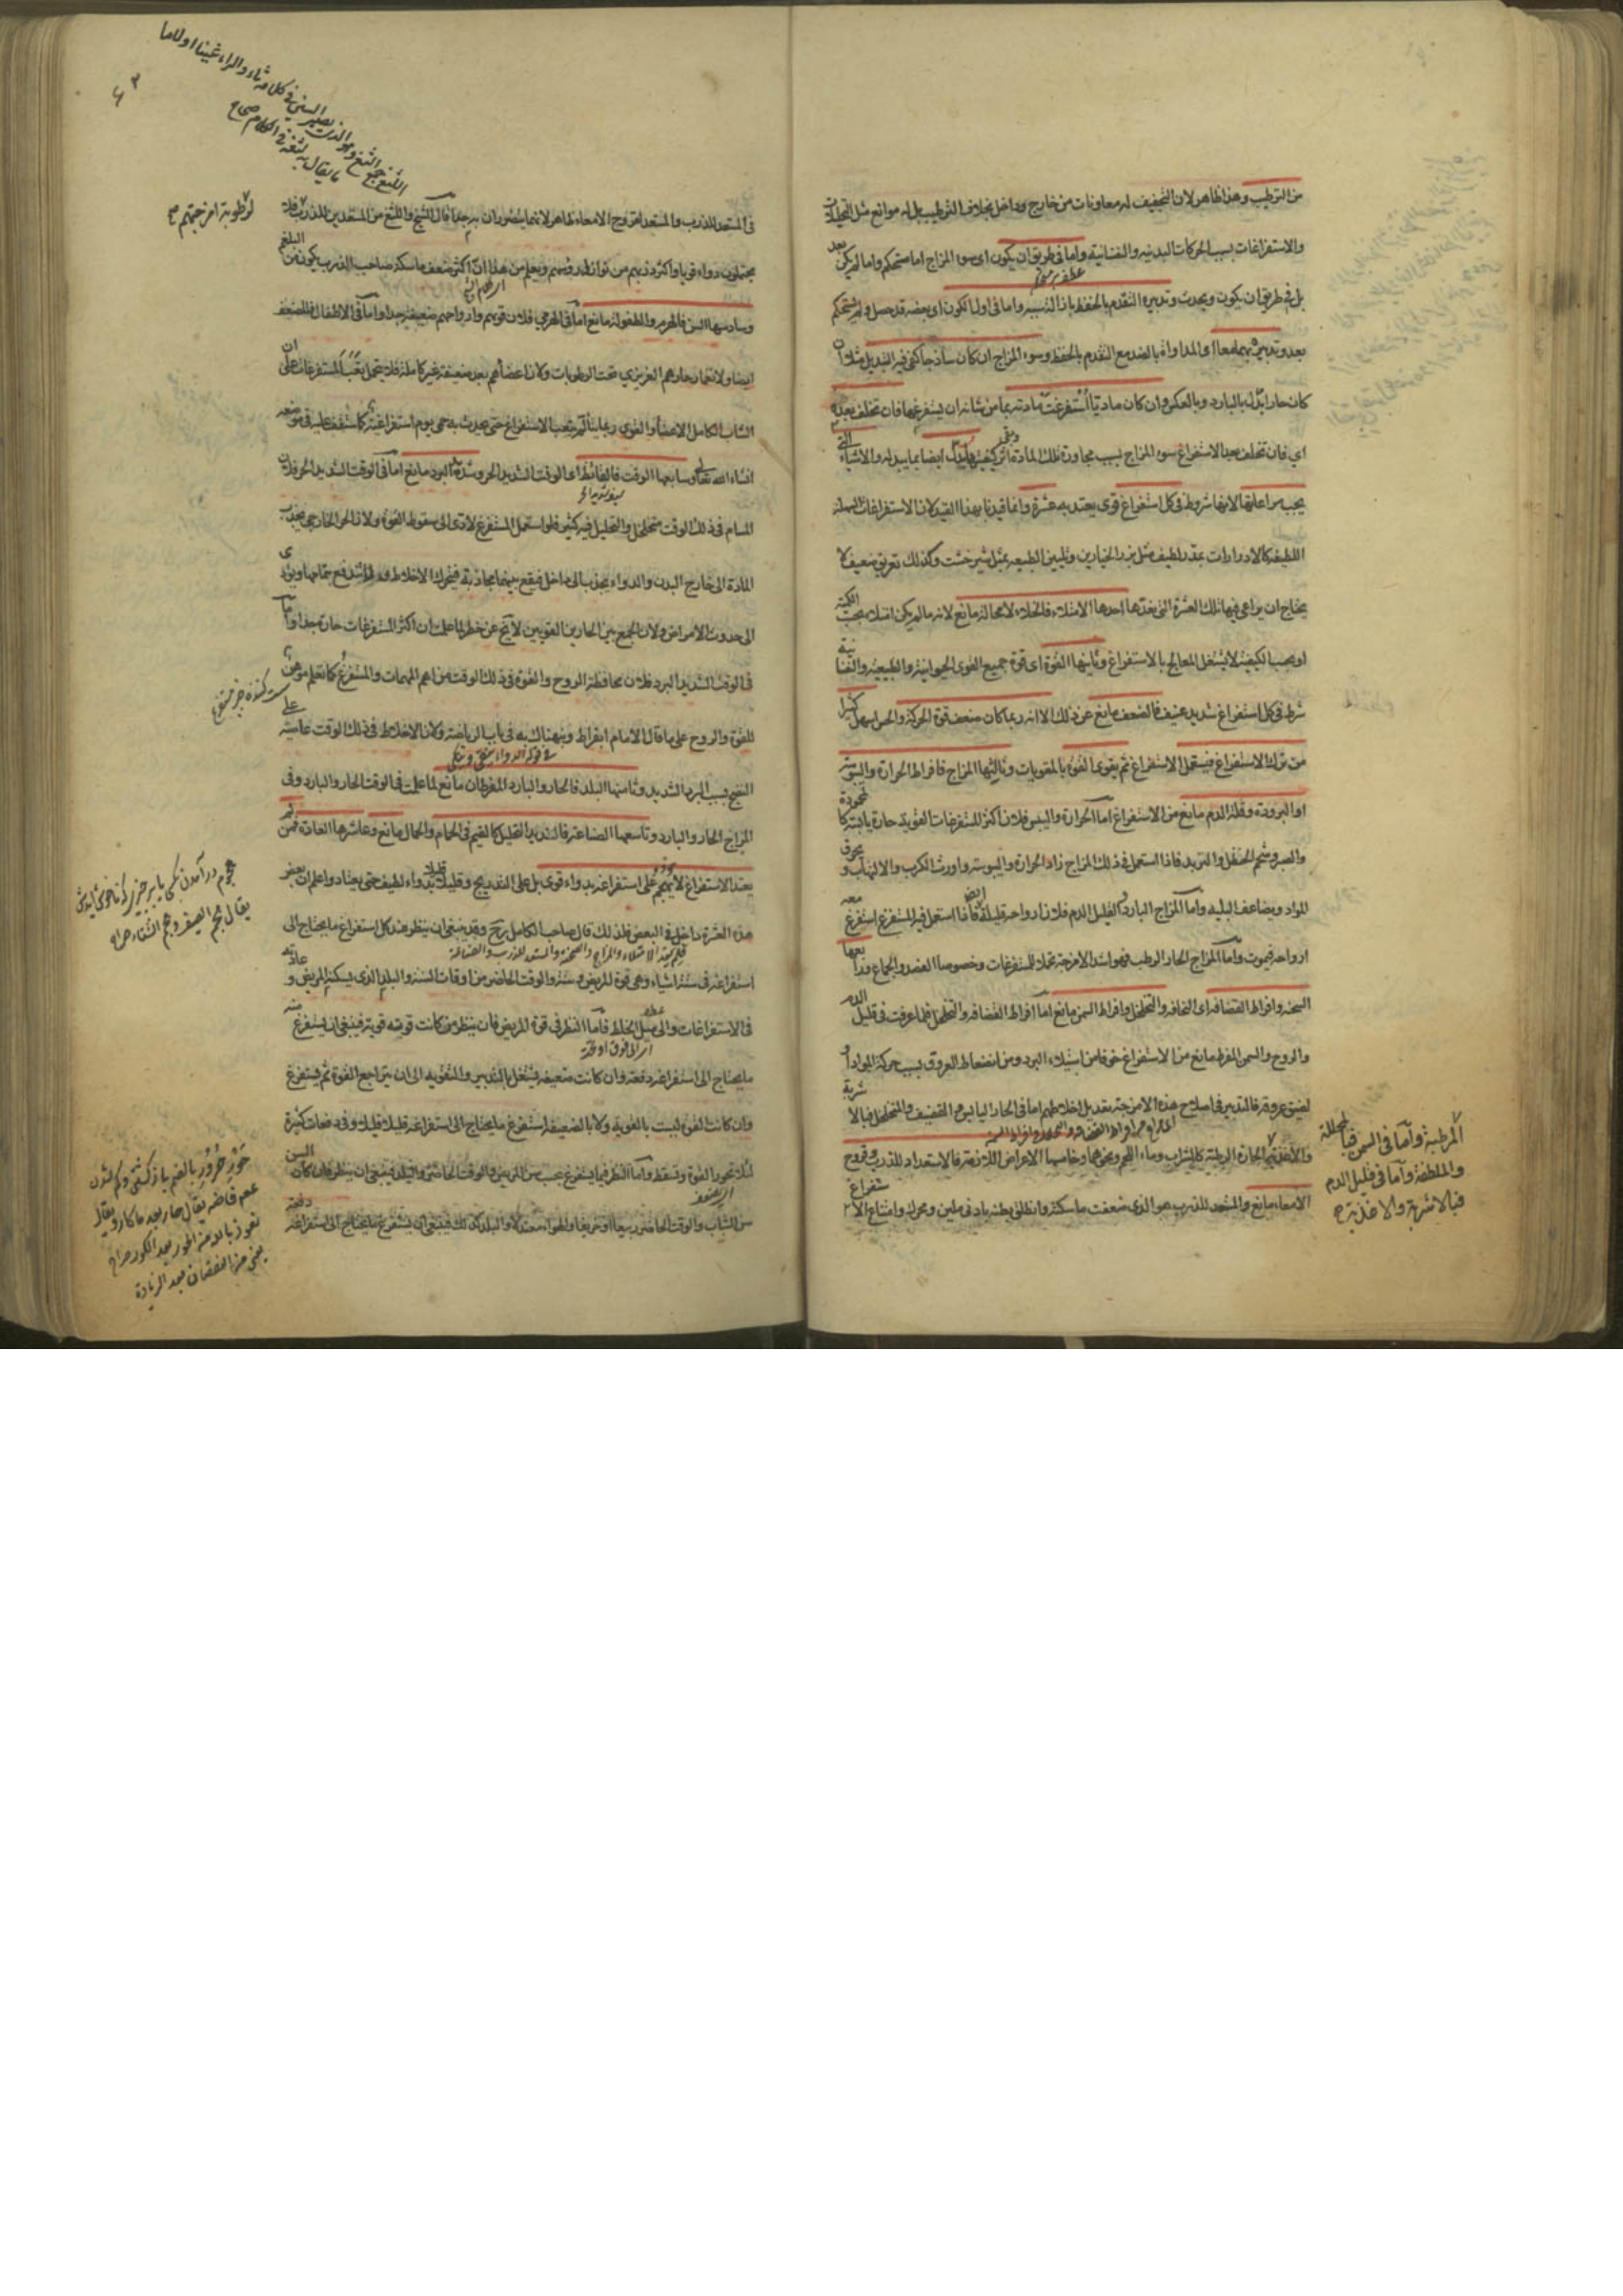 من الترطيب وهذا ظاهر لان التجفيف له معاونات من خارج وداخل بخلاف الترطيب بل له موانع مثل التحليلات
والاستفراغات بسبب الحركات البدنية والنفسانية واما في طريق ان يكون اى سوء المزاج اما مستحكم واما لم يكن بعد
بل في طريق ان يكون ويحدث وتدبيره التقدم بالحفظ بازالة سببه واما في اول الكون اى بعضه قد حصل ولم يستحكم
بعد وتدبيره بهما معا اى المداواة بالضد مع التقدم بالحفظ وسوء المزاج ان كان ساذجا كفى فيه التبديل مثلا ان
كان حارا بدل بالبارد وبالعكس وان كان ماديا استفرغت مادته بما من شانه ان يستفرغها فان تخلف بعده
اى فان تخلف بعد الاستفراغ سوء المزاج بسبب مجاورة تلك المادة ايضا بما يبدله والاشياء التى
يجب مراعاتها لانها شروط في كل استفراغ قوى يعتد به عشرة وانما قيدنا بهذا القيد لان الاستفراغات السهلة
اللطيفة كالادرارات بمدر لطيف مثل بزر الخيارين وتليين الطبيعة بمثل شيرخشت وكذلك تعريق ضعيف لا
يحتاج ان يراعى فيها تلك العشرة التى نعدها احدها الامتلاء فالخلاء لا محالة مانع لانه ما لم يكن امتلاء بحسب الكمية
او بحسب الكيفية لا يشتغل المعالج بالاستفراغ وثانيها القوة اى قوة جميع القوى الحيوانية والطبيعية والنفسانية
شرط في كل استفراغ شديد عنيف فالضعف مانع عن ذلك الا انه ربما كان ضعف قوة الحركة والحس اسهل كثيرا
من ترك الاستفراغ فيستعمل الاستفراغ ثم يقوى القوة بالمقويات وثالثها المزاج فافراط الحرارة واليبوسة
او البرودة وقلة الدم مانع من الاستفراغ اما الحرارة واليبس فلان اكثر المستفرغات القوية حارة يابسة كالمحمودة
والصبر وشحم الحنظل والتربد فاذا استعمل في ذلك المزاج زاد الحرارة واليبوسة واورث الكرب والالتهاب وحرق
المواد ويضاعف البلية واما المزاج البارد والقليل الدم فلان ارواحه قليلة ايضا فاذا استعمل فيه المستفرغ استفرغ معه
ارواحه فيموت واما المزاج الحار الرطب فهو اشد الامزجة تحملا للمستفرغات وخصوصا الفصد والجماع ورابعها
السحنة وافراط القضافة اى النحافة والتخلخل وافراط السمن مانع اما افراط القضافة والتخلخل فلما عرفت في قليل الدم
والروح والسمن المفرط مانع من الاستفراغ خوفا من استيلاء البرد ومن انضغاط العروق بسبب حركة المواد او
لضيق عروقه فالتدبير في اصلاح هذه الامزجة بتعديل اخلاطهم اما في الحار اليابس والقضيف والمتخلخل فبالاشربة
والاغذية الحارة الرطبة كالشراب وماء اللحم ونحوهما وخامسها الاعراض اللازمة فالاستعداد للذرب وقروح
الامعاء مانع والمستعد للذرب هو الذى ضعفت ماسكته وانطلق بطنه بادنى ملين ومحرك وامتناع الاستفراغ
المرطبة واما في السمين فبالمحللة
والملطفة واما في قليل الدم
فبالاشربة والاغذية
في المستعد للذرب والمستعد لقروح الامعاء ظاهر لانهما يتضرران به جدا قال الشيخ واللثغ من المستعدين للذرب فلا
يحتملون دواء قويا واكثر ذربهم من نوازل رؤسهم ويعلم من هذا ان اكثر ضعف ماسكة صاحب الذرب يكون من البلغم
وسادسها السن فالهرم والطفولة مانع اما في الهرمى فلان قوتهم وارواحهم ضعيفة جدا واما في الاطفال فللضعف
ايضا ولانغمار حارهم الغريزي تحت الرطوبات ولان اعضاءهم بعد ضعيفة غير كاملة فلا يتحمل تعب المستفرغات على ان
الشاب الكامل الاعضاء والقوى ربما يتعب الاستفراغ حتى يحدث به حمى يوم استفراغية كما ستقف عليه في موضعه
ان شاء الله تعالى وسابعها الوقت فالقائظ اى الوقت الشديد الحر وشديد البرد مانع اما في الوقت الشديد الحر فلان
المسام في ذلك الوقت متخلخل والتحليل فيه كثير فلو استعمل المستفرغ لادى الى سقوط القوة ولان الحر الخارجى يجذب
المادة الى خارج البدن والدواء يجذب الى داخل فيقع بينهما مجاذبة فيتحرك الاخلاط ولا تندفع بتمامها ويؤدى
الى حدوث الامراض ولان الجمع بين الحارين القويين لا ينجح عن خطر لما علمت ان اكثر المستفرغات حارة جدا واما
في الوقت الشديد البرد فلان محافظة الروح والقوة في ذلك الوقت من اهم المهمات والمستفرغ كما تعلم موهن
للقوة والروح على ما قال الامام ابقراط ونبهناك به في باب الرياضة ولان الاخلاط في ذلك الوقت عاصية على
النضج بسبب البرد الشديد وثامنها البلد فالحار والبارد المفرطان مانع لما علمت في الوقت الحار والبارد وفى
المزاج الحار والبارد وتاسعها الصناعة فالشديد التحليل كالقيم في الحمام والحمال مانع وعاشرها العادة فمن لم
يعتد الاستفراغ لا يهجم على استفراغه بدواء قوى بل على التدريج وقليلا قليلا بدواء لطيف حتى يعتاد واعلم ان بعض
هذه العشرة داخل في البعض فلذلك قال صاحب الكامل وقد ينبغى ان ينظر عند كل استفراغ ما يحتاج الى
استفراغه في ستة اشياء وهى قوة المريض وسنه والوقت الحاضر من اوقات السنة والبلد الذى يسكنه المريض وعادته
في الاستفراغات والى ميل الخلط فاما النظر في قوة المريض فان ينظر فان كانت قوته قوية فينبغى ان يستفرغ منه
ما يحتاج الى استفراغه دفعة وان كانت ضعيفة يشتغل بالتدبير والتقوية الى ان يتراجع القوة ثم يستفرغ
وان كانت القوة ليست بالقوية ولا بالضعيفة استفرغ ما يحتاج الى استفراغه قليلا قليلا وفى دفعات كثيرة
لئلا تخور القوة وتسقط واما النظر فيما يستفرغ بحسب سن المريض والوقت الحاضر والبلد فينبغى ان ينظر فان كان السن
سن الشباب والوقت الحاضر ربيعا او خريفا والهواء معتدلا والبلد كذلك فينبغى ان يستفرغ ما يحتاج الى استفراغه دفعة
لرطوبة امزجتهم
يقال هجم الصيف وهجم الشتاء صراح
نعوذ بالله من الحور بعد الكور صراح
يعنى من النقصان بعد الزيادة